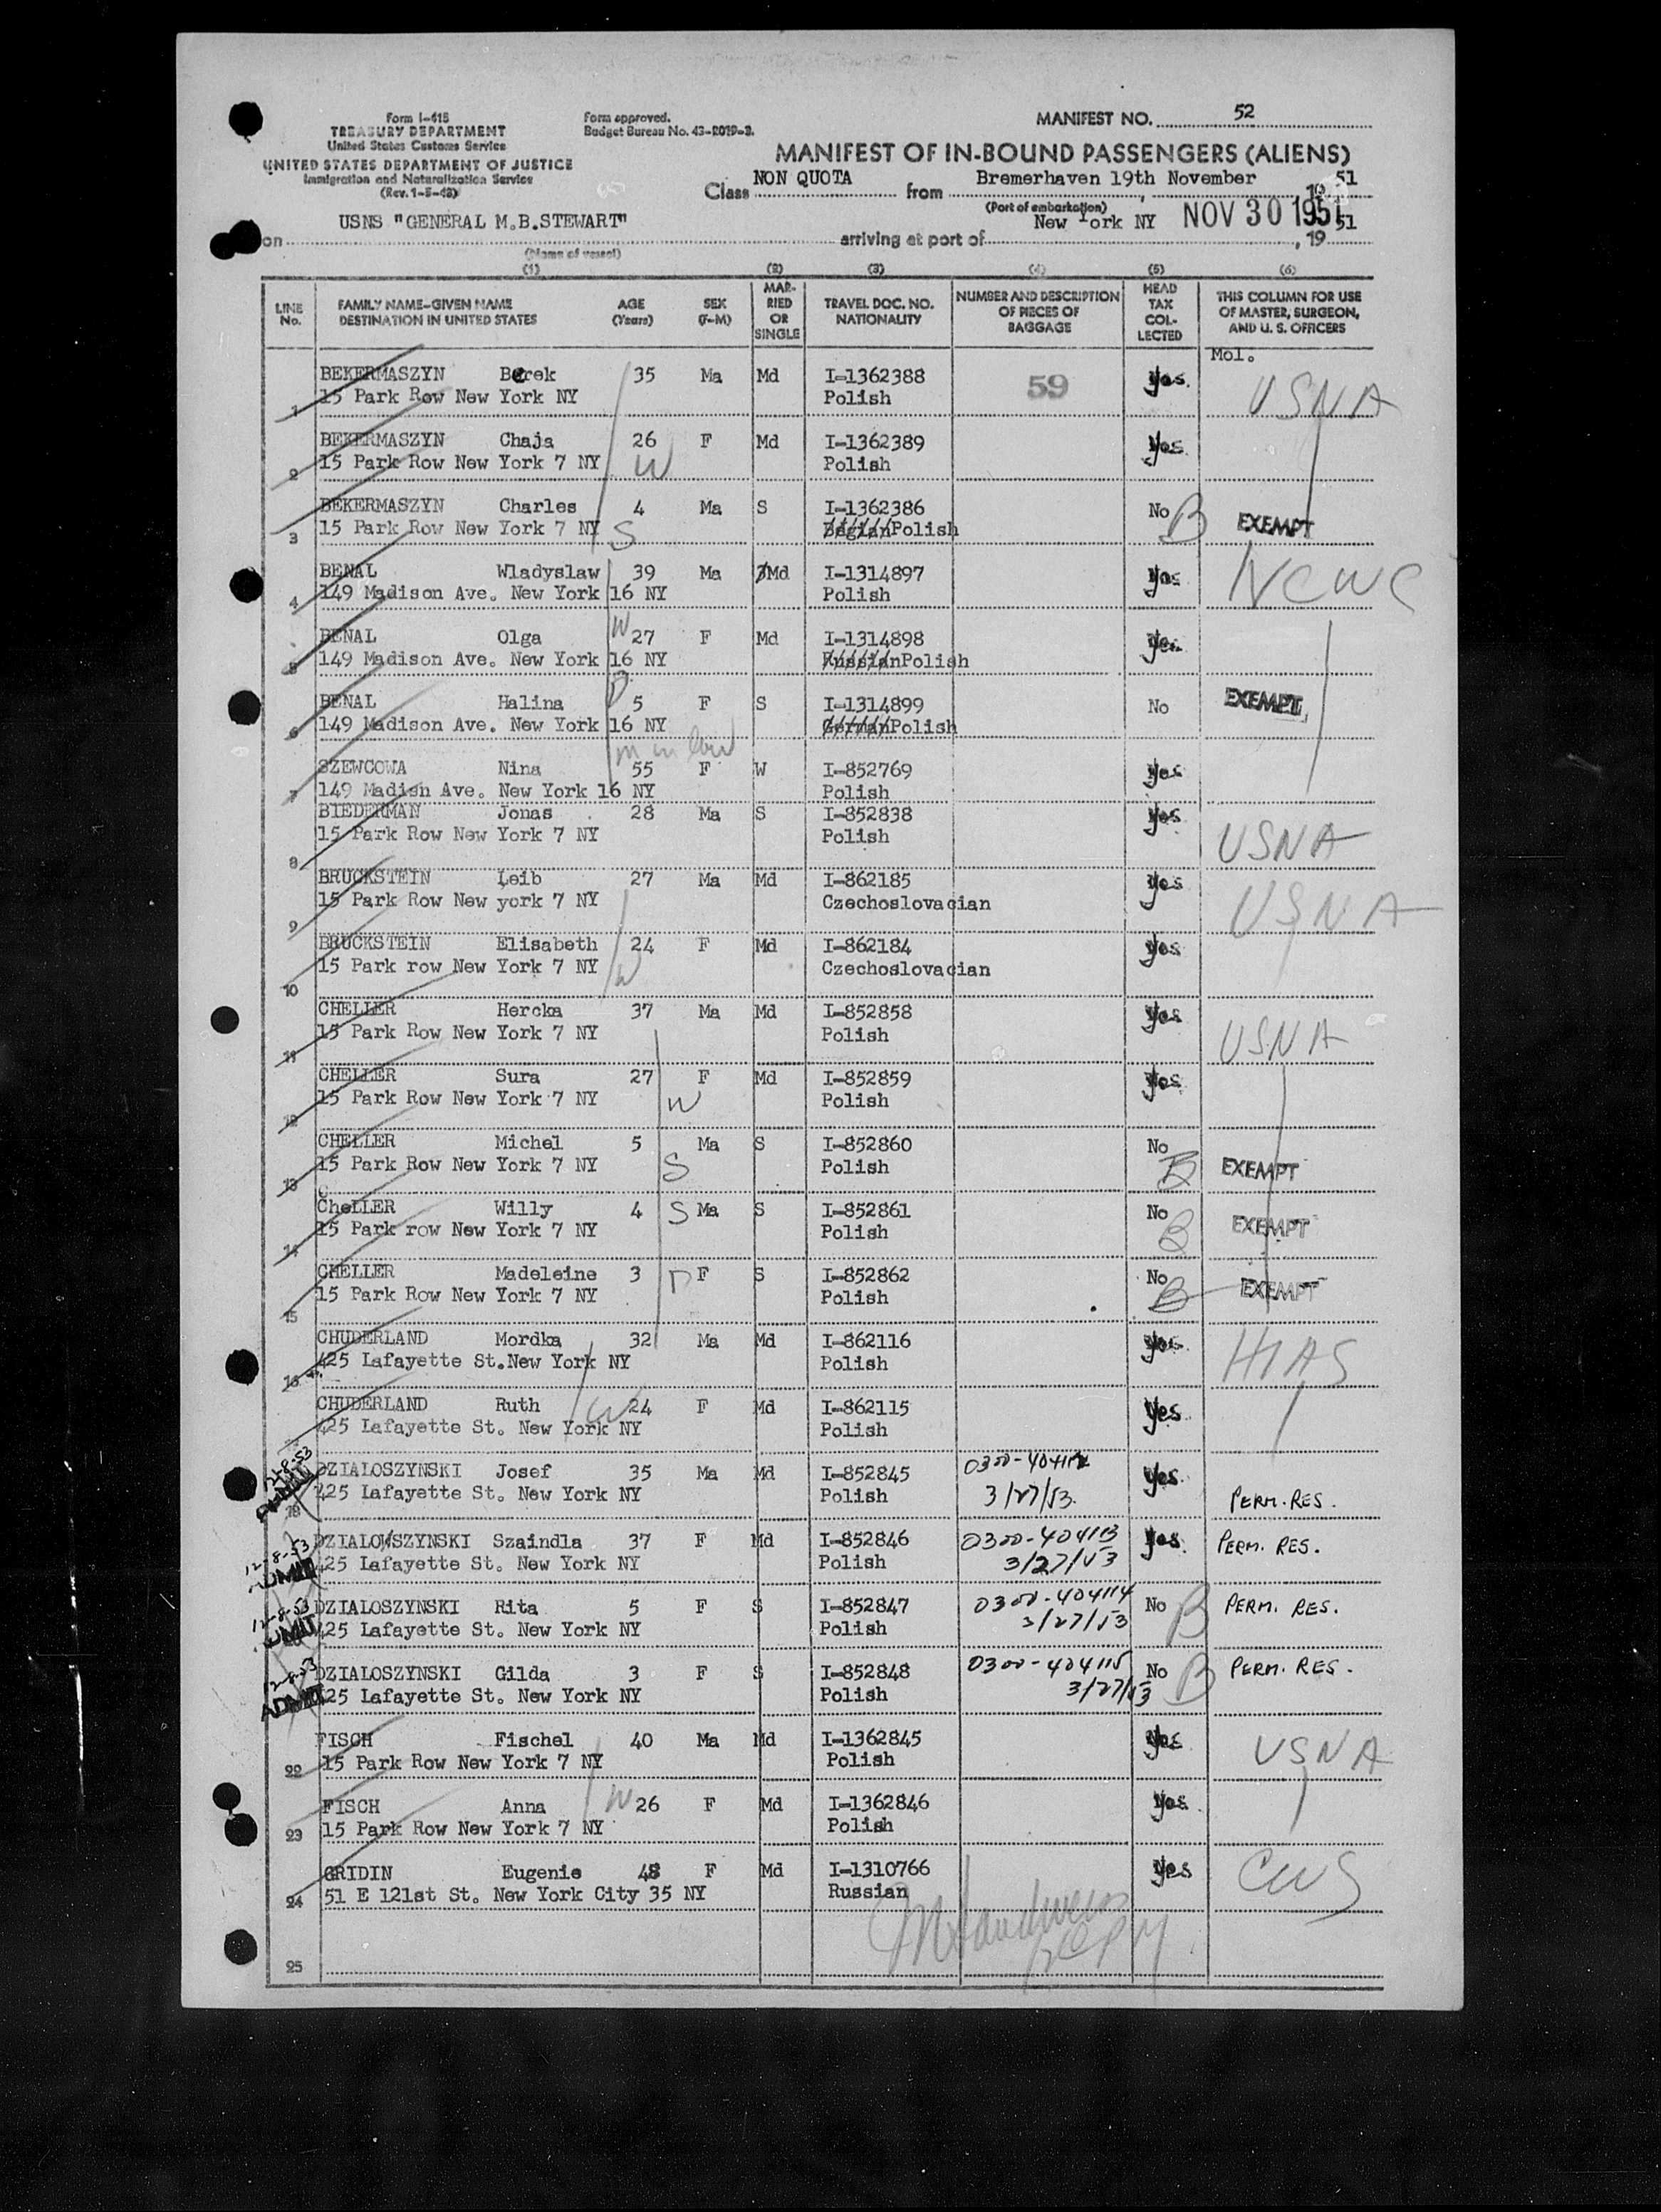 Form I-415
TREASURY DEPARTMENT
United States Customs Service
UNITED STATES DEPARTMENT OF JUSTICE
Immigration and Naturalization Service
(Rev. 1-5-48)
Form approved.
Budget Bureau No. 43-R019-3.
MANIFEST NO. 52
MANIFEST OF IN-BOUND PASSENGERS (ALIENS)
Class NON QUOTA from Bremerhaven 19th November, 19 51
(Port of embarkation)
on USNS "GENERAL M.B.STEWART" arriving at port of New York NY NOV 30 1951, 19 51
(Name of vessel)
(1) (2) (3) (4) (5) (6)
LINE No. FAMILY NAME-GIVEN NAME DESTINATION IN UNITED STATES AGE (Years) SEX (F-M) MARRIED OR SINGLE TRAVEL DOC. NO. NATIONALITY NUMBER AND DESCRIPTION OF PIECES OF BAGGAGE HEAD TAX COLLECTED THIS COLUMN FOR USE OF MASTER, SURGEON, AND U. S. OFFICERS
Mol.
BEKERMASZYN Berek 35 Ma Md I-1362388 59 Yes USNA
1 15 Park Row New York NY Polish
BEKERMASZYN Chaja 26 F Md I-1362389 Yes
2 15 Park Row New York 7 NY W Polish
BEKERMASZYN Charles 4 Ma S I-1362386 No B EXEMPT
3 15 Park Row New York 7 NY S Polish
BENAL Wladyslaw 39 Ma Md I-1314897 Yes NCWC
4 149 Madison Ave. New York 16 NY Polish
BENAL Olga W 27 F Md I-1314898 Yes
5 149 Madison Ave. New York 16 NY RussianPolish
BENAL Halina D 5 F S I-1314899 No EXEMPT
6 149 Madison Ave. New York 16 NY GermanPolish
SZEWCOWA Nina 55 F W I-852769 Yes
7 149 Madisn Ave. New York 16 NY Polish
BIEDERMAN Jonas 28 Ma S I-852838 Yes USNA
8 15 Park Row New York 7 NY Polish
BRUCKSTEIN Leib 27 Ma Md I-862185 Yes USNA
9 15 Park Row New york 7 NY Czechoslovacian
BRUCKSTEIN Elisabeth 24 F Md I-862184 Yes
10 15 Park row New York 7 NY W Czechoslovacian
CHELLER Hercka 37 Ma Md I-852858 Yes USNA
11 15 Park Row New York 7 NY Polish
CHELLER Sura 27 F Md I-852859 Yes
12 15 Park Row New York 7 NY W Polish
CHELLER Michel 5 Ma S I-852860 No B EXEMPT
13 15 Park Row New York 7 NY S Polish
CHeLLER Willy 4 S Ma S I-852861 No B EXEMPT
14 15 Park row New York 7 NY Polish
CHELLER Madeleine 3 D F S I-852862 No B EXEMPT
15 15 Park Row New York 7 NY Polish
CHUDERLAND Mordka 32 Ma Md I-862116 Yes HIAS
16 425 Lafayette St.New York NY Polish
CHUDERLAND Ruth W 24 F Md I-862115 Yes
425 Lafayette St. New York NY Polish
12-8-53 ADMIT DZIALOSZYNSKI Josef 35 Ma Md I-852845 0300-404112 Yes PERM. RES.
18 425 Lafayette St. New York NY Polish 3/27/53
12-8-53 ADMIT DZIALOWSZYNSKI Szaindla 37 F Md I-852846 0300-404113 Yes PERM. RES.
425 Lafayette St. New York NY Polish 3/27/53
12-8-53 ADMIT DZIALOSZYNSKI Rita 5 F S I-852847 0300-404114 No B PERM. RES.
425 Lafayette St. New York NY Polish 3/27/53
12-8-53 ADMIT DZIALOSZYNSKI Gilda 3 F S I-852848 0300-404115 No B PERM. RES.
425 Lafayette St. New York NY Polish 3/27/53
FISCH Fischel 40 Ma Md I-1362845 Yes USNA
22 15 Park Row New York 7 NY Polish
FISCH Anna W 26 F Md I-1362846 Yes
23 15 Park Row New York 7 NY Polish
GRIDIN Eugenie 48 F Md I-1310766 Yes CWS
24 51 E 121st St. New York City 35 NY Russian
25